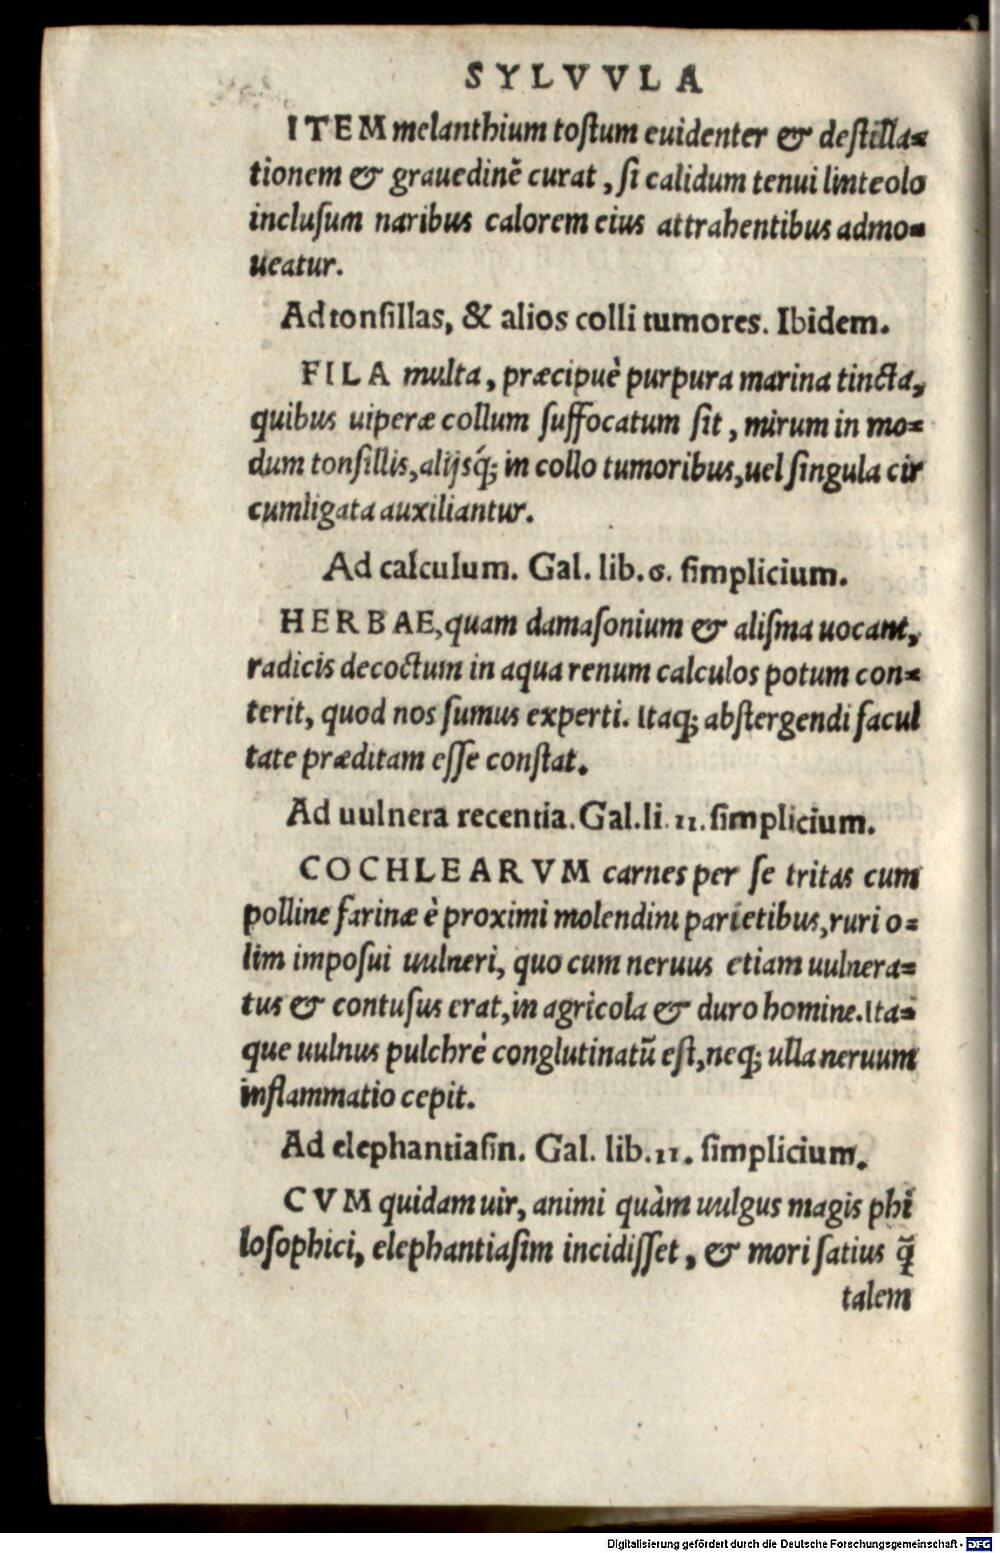 SYLVVLA
ITEM melanthium toſtum euidenter & deſtilla=
tionem & grauedinē curat, ſi calidum tenui linteolo
incluſum naribus calorem eius attrahentibus admo=
ueatur.
Ad tonſillas, & alios colli tumores. Ibidem.
FILA multa, præcipuè purpura marina tincta,
quibus uiperæ collum ſuffocatum ſit, mirum in mo=
dum tonſillis, alijsq́; in collo tumoribus, uel ſingula cir
cumligata auxiliantur.
Ad calculum. Gal. lib. 6. ſimplicium.
HERBAE, quam damaſonium & aliſma uocant,
radicis decoctum in aqua renum calculos potum con=
terit, quod nos ſumus experti. Itaq; abſtergendi facul
tate præditam eſſe conſtat.
Ad uulnera recentia. Gal. li. 11. ſimplicium.
COCHLEARVM carnes per ſe tritas cum
polline farinæ è proximi molendini parietibus, ruri o=
lim impoſui uulneri, quo cum neruus etiam uulnera=
tus & contuſus erat, in agricola & duro homine. Ita=
que uulnus pulchrè conglutinatū eſt, neq; ulla neruum
inflammatio cepit.
Ad elephantiaſin. Gal. lib. 11. ſimplicium.
CVM quidam uir, animi quàm uulgus magis phi
loſophici, elephantiaſim incidiſſet, & mori ſatius q̃
talem
Digitalisierung gefördert durch die Deutsche Forschungsgemeinschaft - DFG